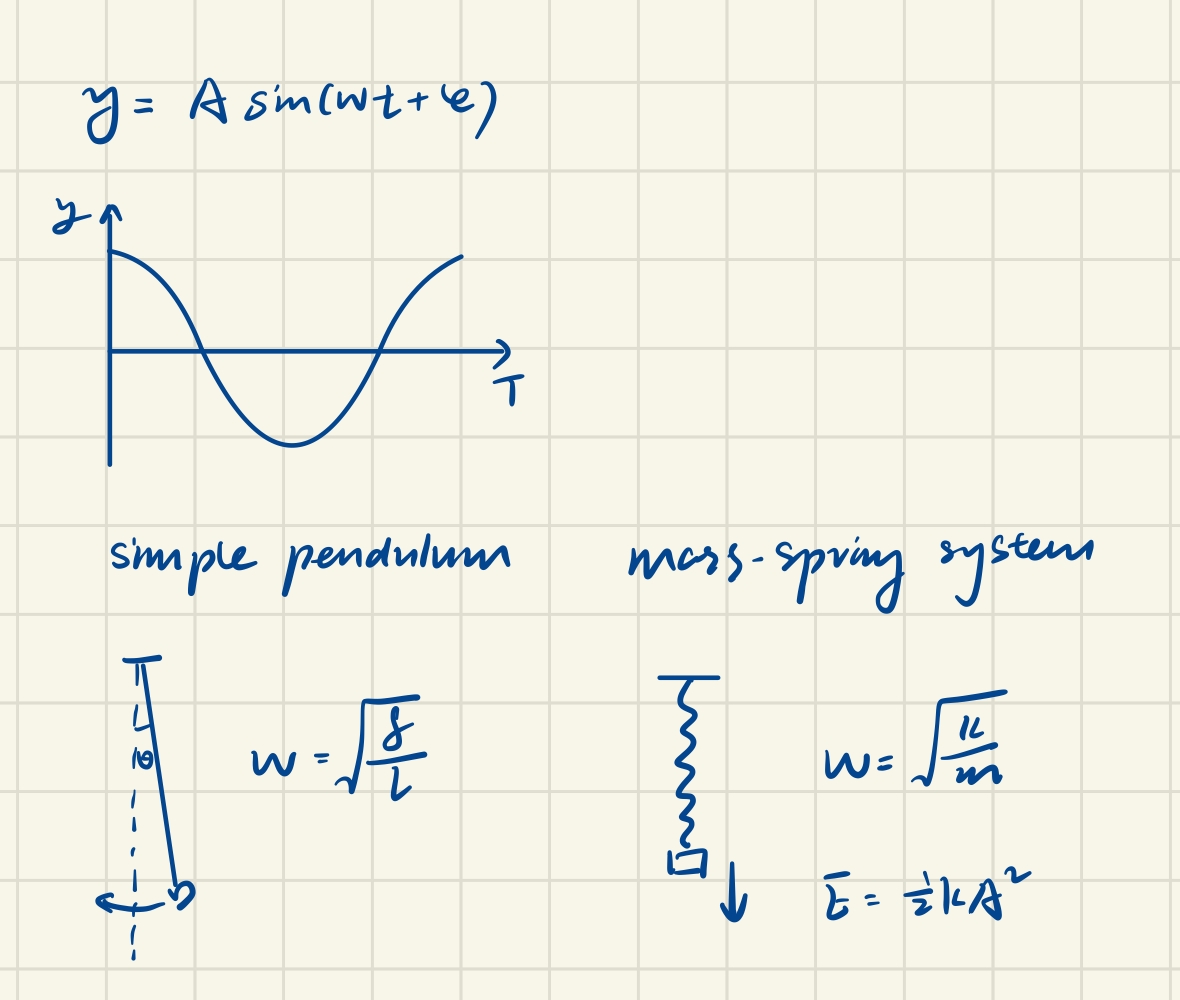 y = A sin(wt + φ)
y
T
simple pendulum
mass-spring system
θ
w = √(g/l)
w = √(k/m)
E = ½kA²